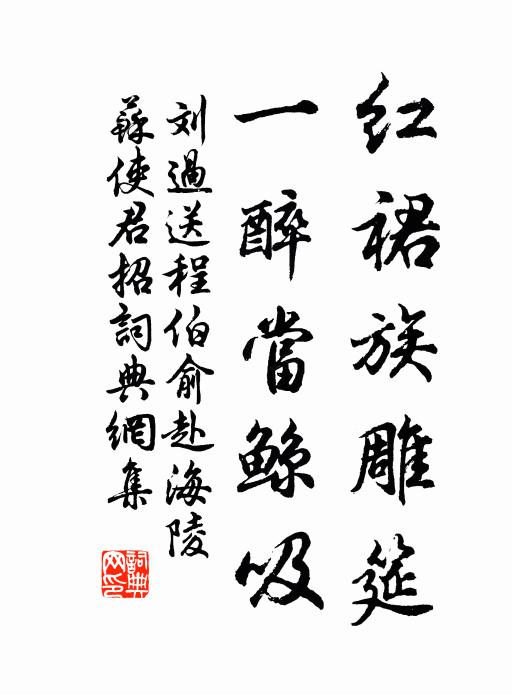 红裙族雕筵
一醉當鲸吸
刘過送程伯俞赴海陵
蘇使君招詞典網集
詞典网印